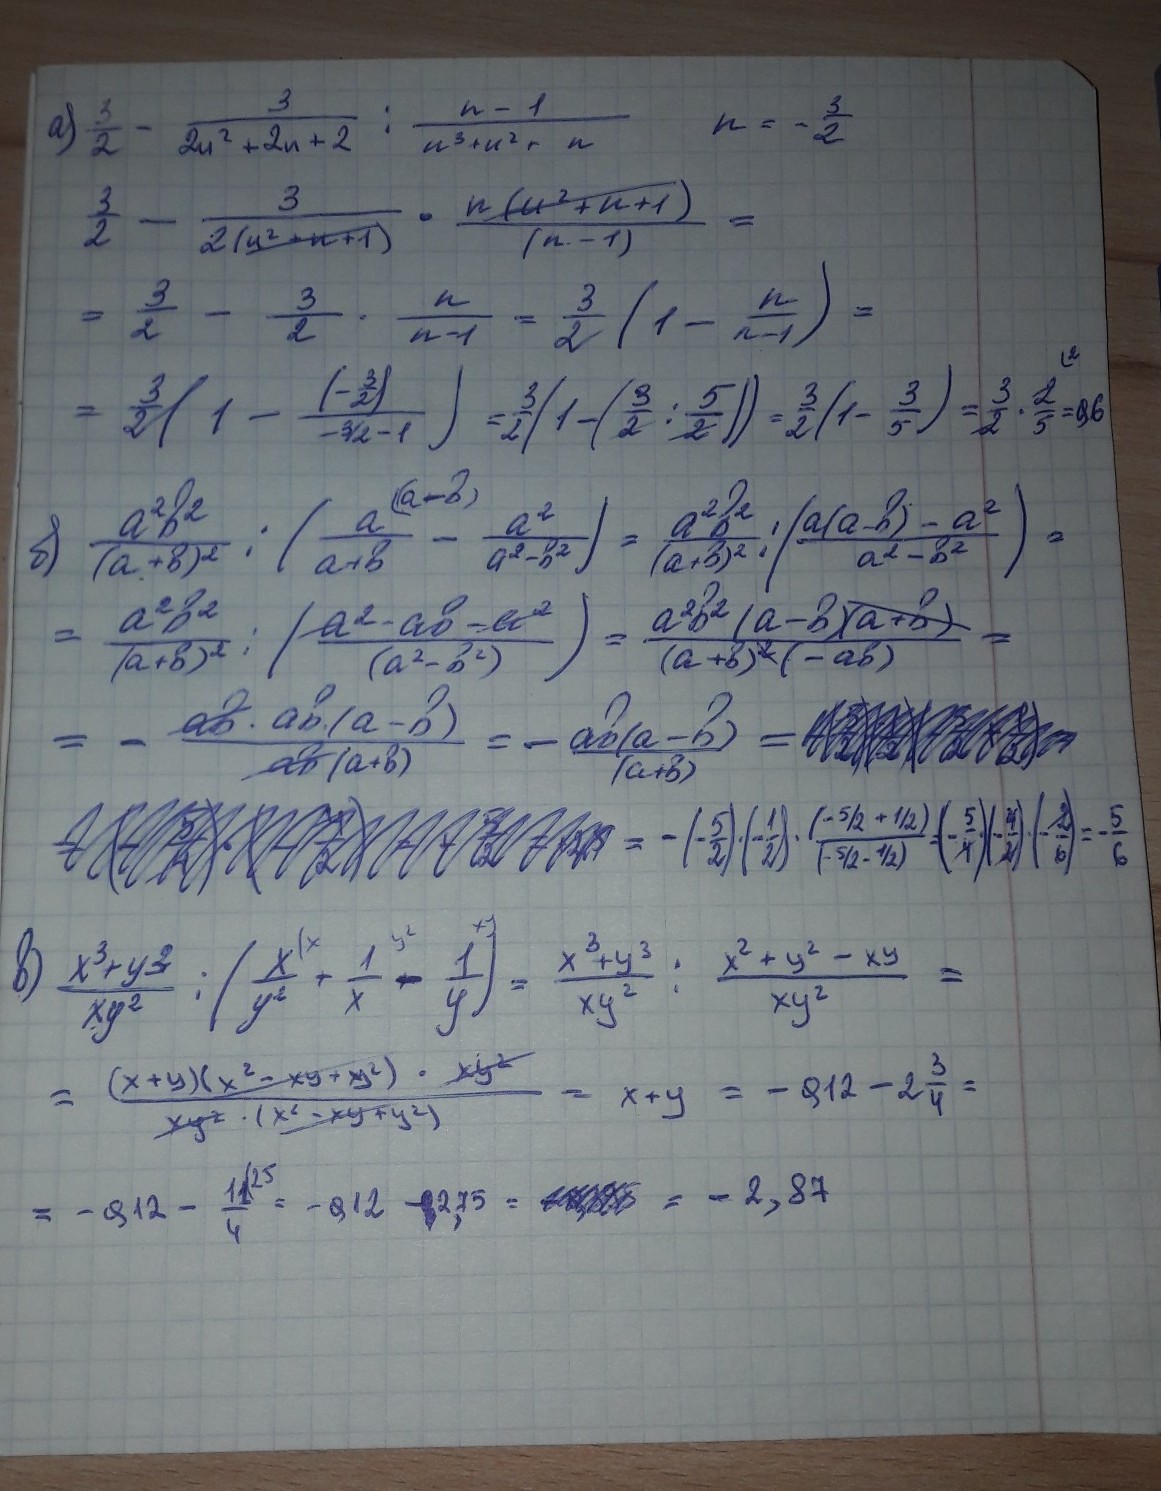 а) 3/2 - 3/(2n² + 2n + 2) : (n - 1)/(n³ + n² + n)   n = -3/2
3/2 - 3/(2(n² + n + 1)) · n(n² + n + 1)/(n - 1) =
= 3/2 - 3/2 · n/(n-1) = 3/2 (1 - n/(n-1)) =
= 3/2 (1 - (-3/2)/(-3/2 - 1)) = 3/2 (1 - (3/2 : 5/2)) = 3/2 (1 - 3/5) = 3/2 · 2/5 = 0,6
б) a²b²/(a+b)² : (a/(a+b) (a-b) - a²/(a²-b²)) = a²b²/(a+b)² : ((a(a-b) - a²)/(a²-b²)) =
= a²b²/(a+b)² : ((a² - ab - a²)/(a²-b²)) = a²b²(a-b)(a+b)/((a+b)²(-ab)) =
= - ab·ab·(a-b)/(ab(a+b)) = - ab(a-b)/(a+b) =
= -(-5/2)·(-1/2)·(-5/2+1/2)/(-5/2-1/2) = (-5/4)(-4/2)·(-2/6) = -5/6
в) (x³+y³)/(xy²) : (x/y² (x + 1/x y² - 1/y xy) = (x³+y³)/(xy²) : (x² + y² - xy)/(xy²) =
= (x+y)(x² - xy + y²) · xy²/(xy² · (x² - xy + y²)) = x+y = -0,12 - 2 3/4 =
= -0,12 - 11/4 (25 = -0,12 - 2,75 = = -2,87